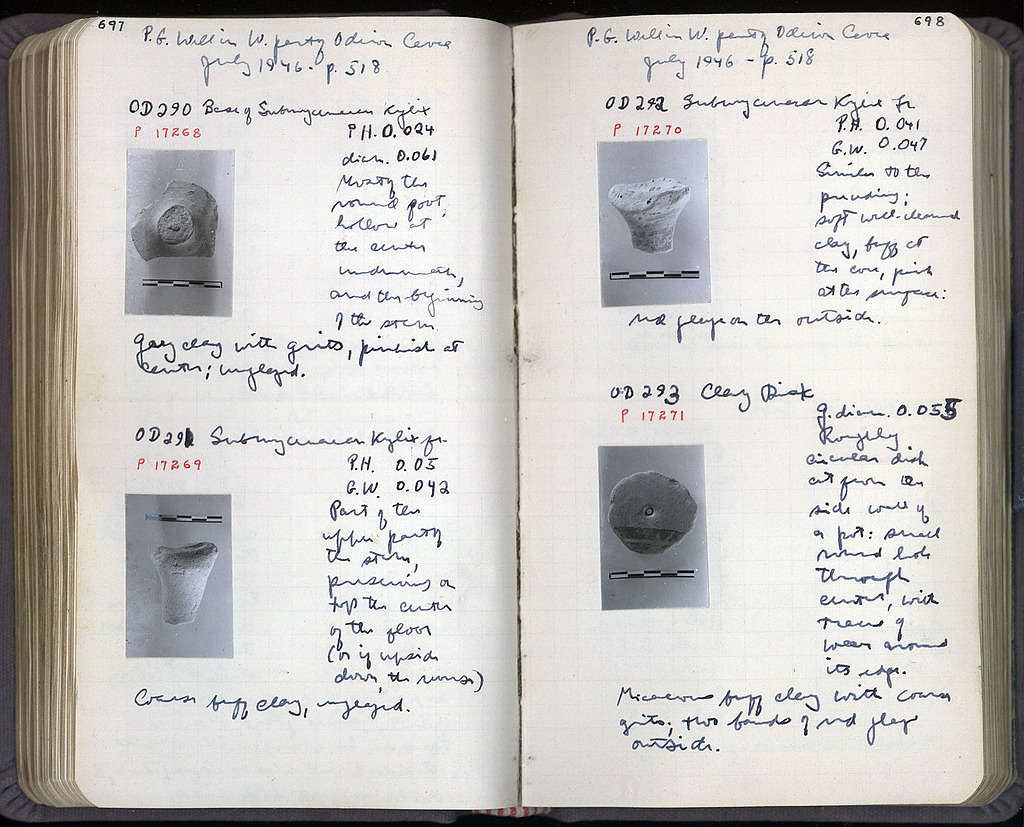 697
P.G. Well in W. part of Odeion Cavea
July 1946 - p. 518
OD290 Base of Submycenaean Kylix
P 17268
P.H. 0.024
diam. 0.061
Mostly the
round foot,
hollow at
the center
underneath,
and the beginning
of the stem.
Gray clay with grits, pinkish at
center; unglazed.
OD291 Submycenaean Kylix fr.
P 17269
P.H. 0.05
G.W. 0.042
Part of the
upper part of
the stem,
preserving on
top the center
of the floor
(or if upside
down, the reverse)
Coarse buff clay, unglazed.
698
P.G. Well in W. part of Odeion Cavea
July 1946 - p. 518
OD292 Submycenaean Kylix fr.
P 17270
P.H. 0.041
G.W. 0.047
Similar to the
preceding;
soft well-cleaned
clay, buff at
the core, pink
at the surface:
red glaze on the outside.
OD293 Clay Disk
P 17271
g. diam. 0.055
Roughly
circular disk
cut from the
side wall of
a pot: small
round hole
through
center, with
traces of
wear around
its edge.
Micaceous buff clay with coarse
grits; two bands of red glaze
outside.